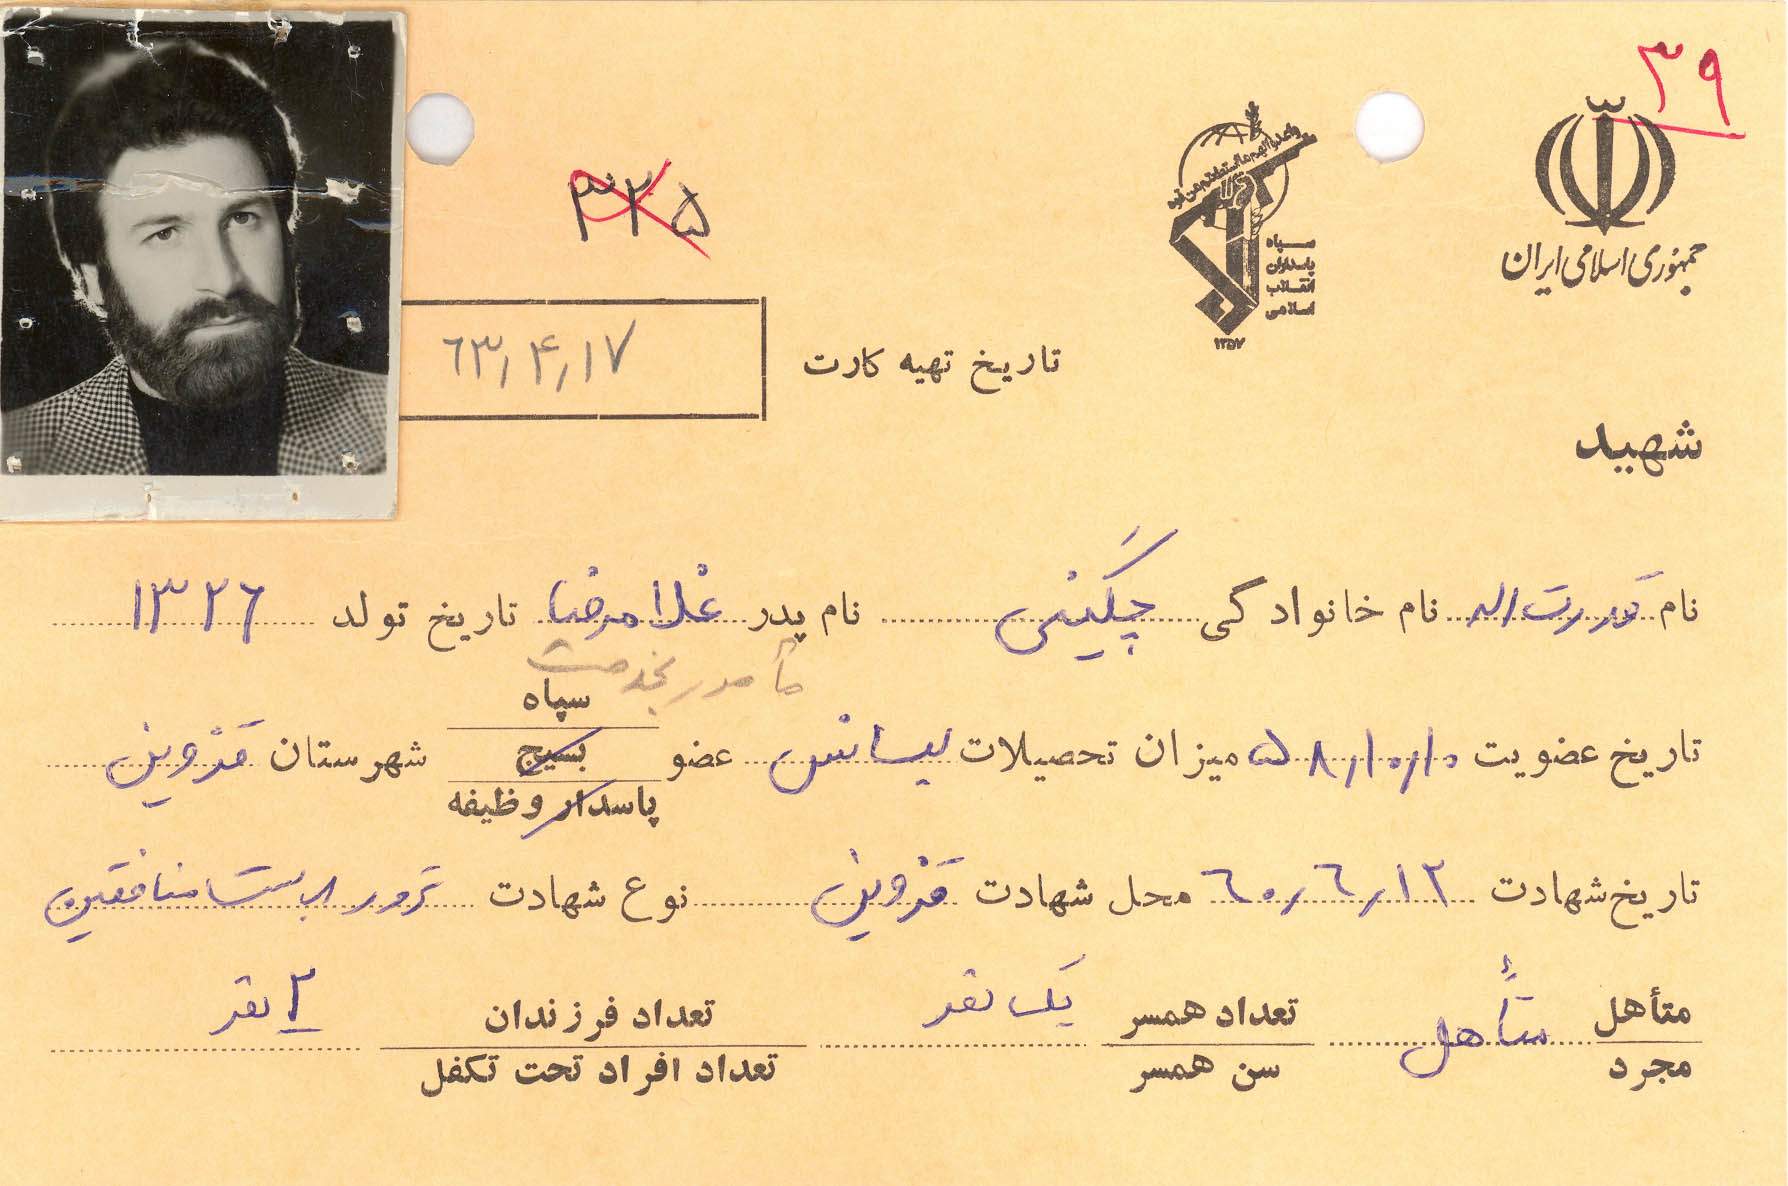 ۳۹
جمهوری اسلامی ایران
سپاه
پاسداران
انقلاب
اسلامی
۱۳۵۷
۳۲۵
تاریخ تهیه کارت ۶۳٫۴٫۱۷
شهید
نام قدرت اله نام خانوادگی چگینی نام پدر غلامرضا تاریخ تولد ۱۳۲۶
مأمور بخدمت
سپاه
تاریخ عضویت ۵۸٫۱۰٫۱۰ میزان تحصیلات لیسانس عضو بسیج شهرستان قزوین
پاسدار وظیفه
تاریخ شهادت ۶۰٫۶٫۱۲ محل شهادت قزوین نوع شهادت ترور بدست منافقین
متأهل متأهل تعداد همسر یک نفر تعداد فرزندان ۲ نفر
مجرد سن همسر تعداد افراد تحت تکفل